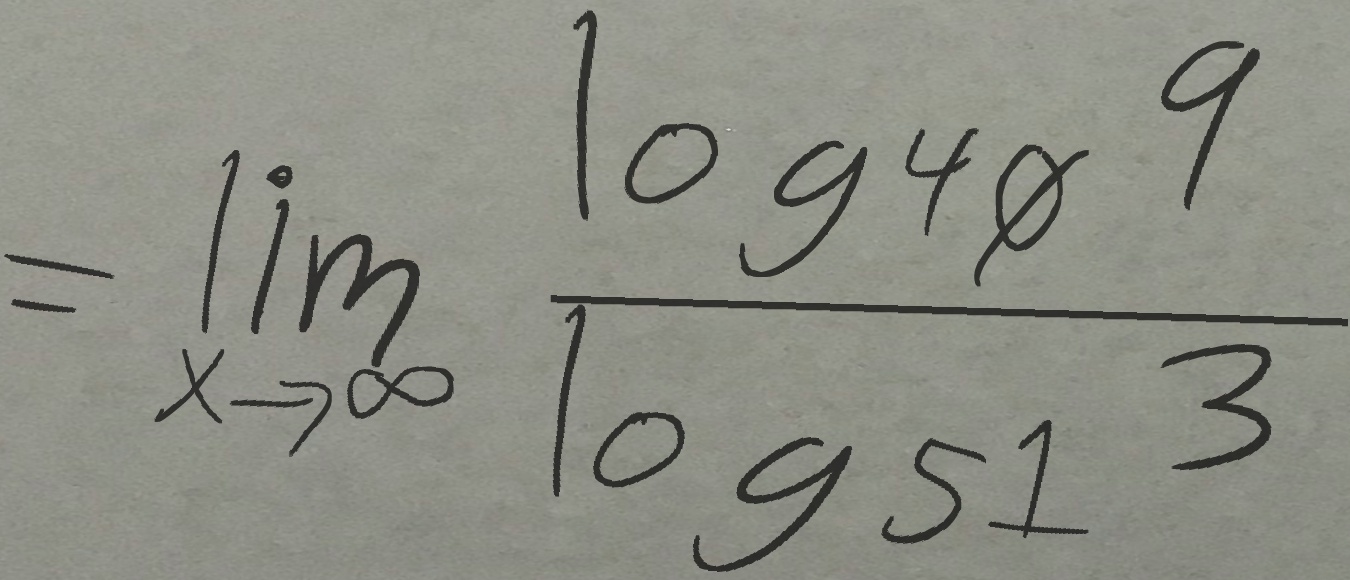 = \lim_{x \to \infty} \frac{\log_{40} 9}{\log_{51} 3}